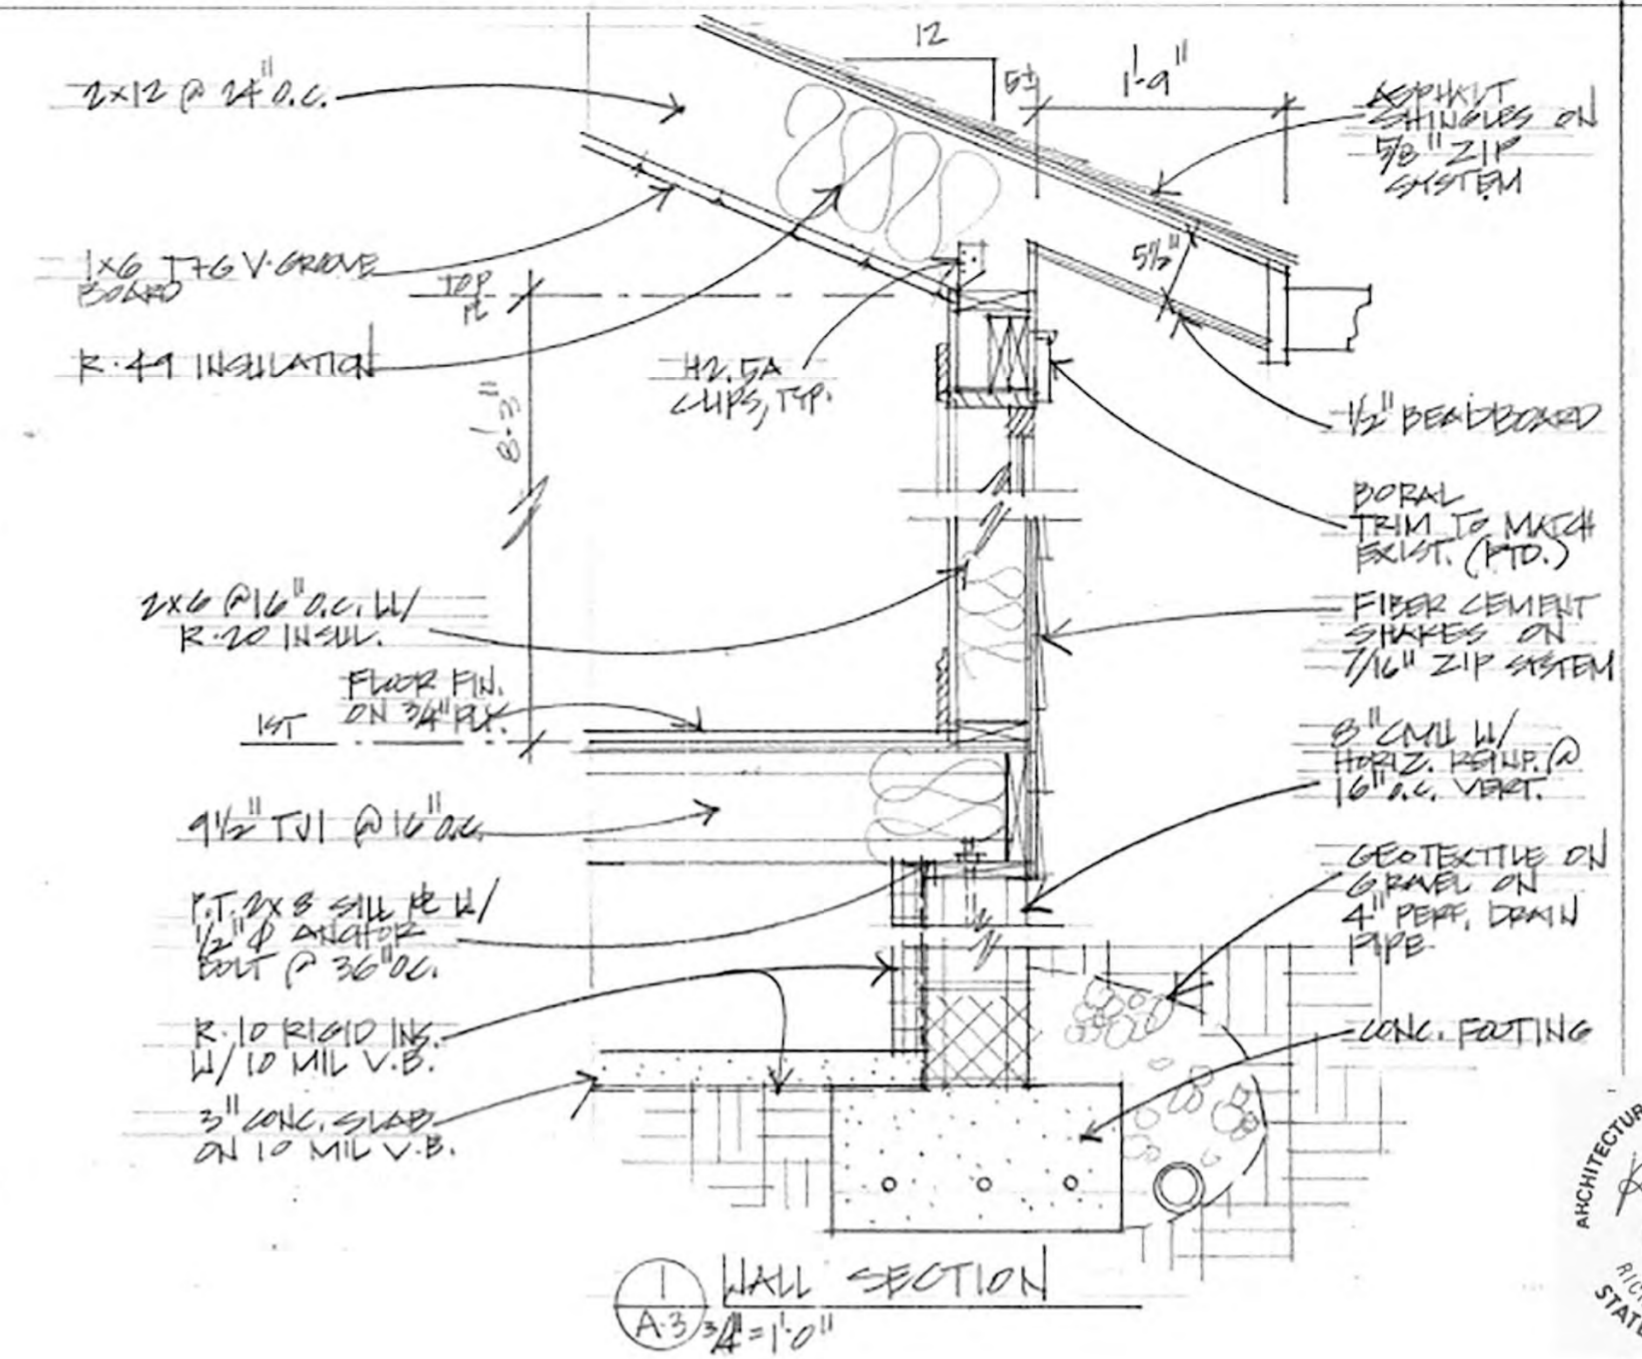 12
5±
1'-9"
2x12 @ 24" O.C.
ASPHALT
SHINGLES ON
5/8" ZIP
SYSTEM
1x6 T+G V-GROOVE
BOARD
TOP
PL
5½"
R-49 INSULATION
H2.5A
CLIPS, TYP.
8'-3"
1/2" BEADBOARD
BORAL
TRIM TO MATCH
EXIST. (PTD.)
2x6 @ 16" O.C. W/
R-20 INSUL.
FIBER CEMENT
SHAKES ON
7/16" ZIP SYSTEM
FLOOR FIN.
ON 3/4" PLY.
1ST
8" CMU W/
HORIZ. REINF. @
16" O.C. VERT.
9½" TJI @ 16" O.C.
GEOTEXTILE ON
GRAVEL ON
4" PERF. DRAIN
PIPE
P.T. 2x8 SILL PL W/
1/2" Φ ANCHOR
BOLT @ 36" O.C.
R-10 RIGID INS.
W/ 10 MIL V.B.
CONC. FOOTING
3" CONC. SLAB
ON 10 MIL V.B.
1
A-3
WALL SECTION
3/4" = 1'-0"
ARCHITECTUR
STATE